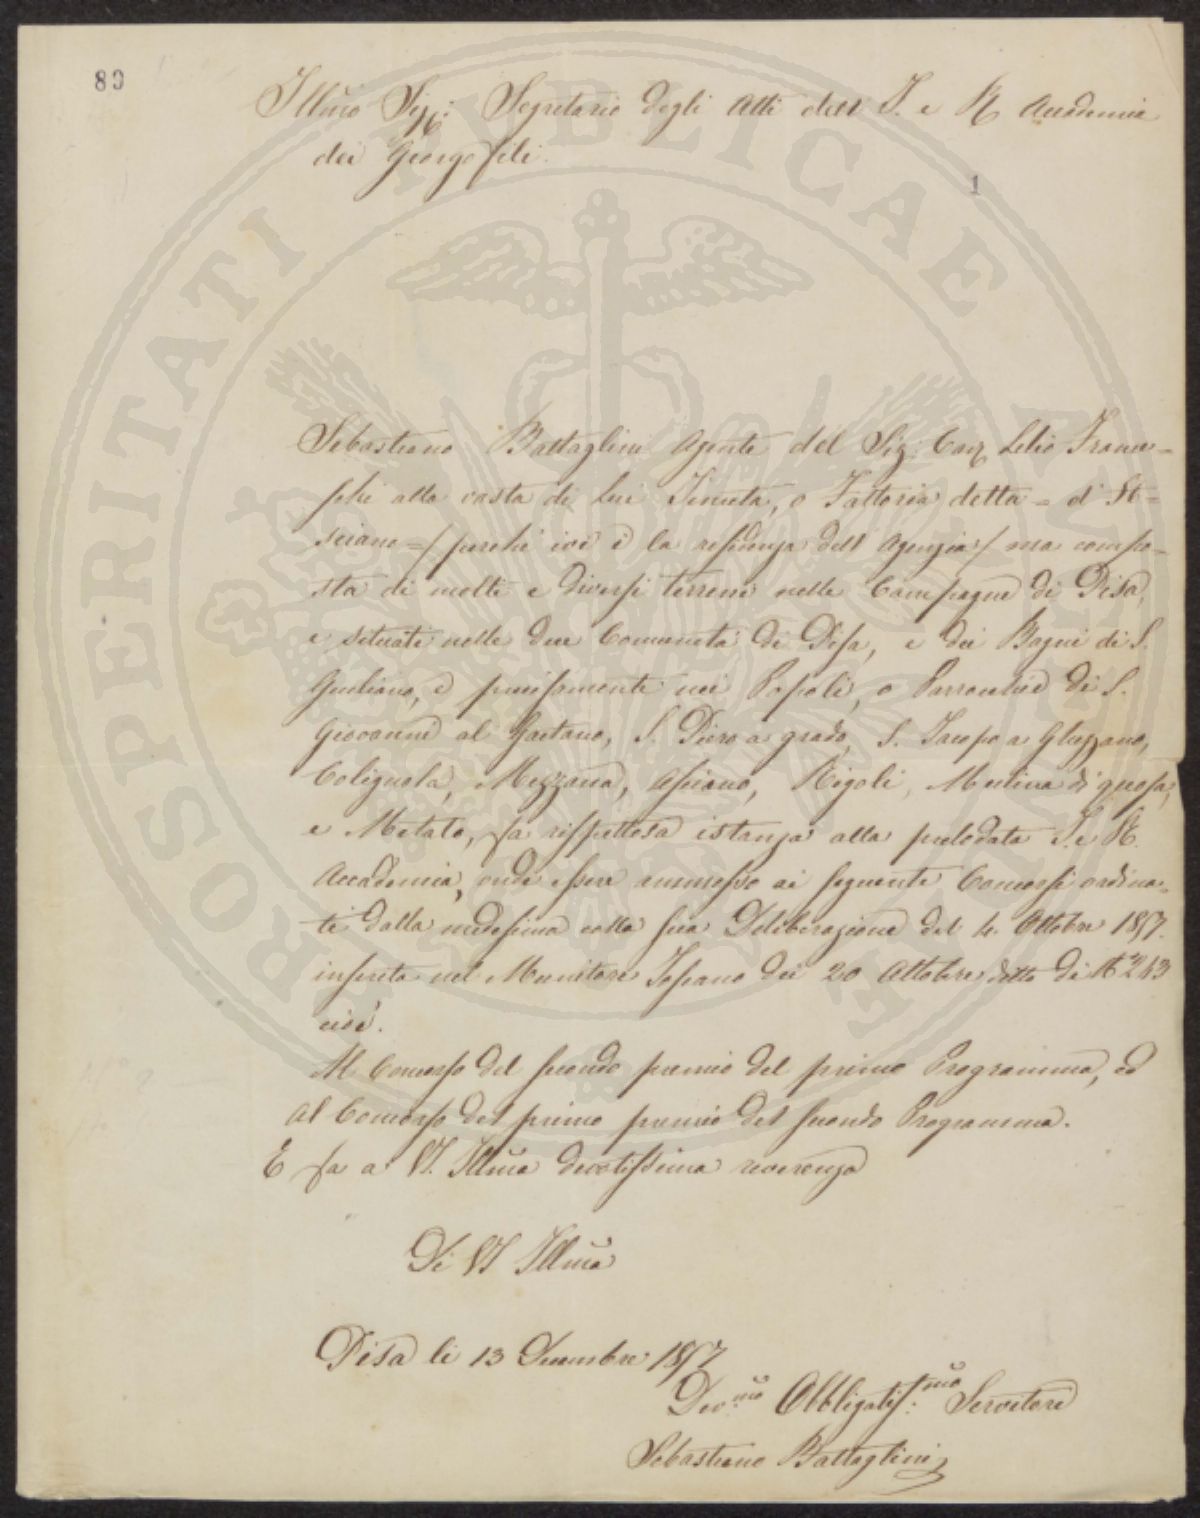 80
Illmo Sigr: Segretario degli Atti dell' I. e R. Accademia
dei Georgofili.
1
Sebastiano Battaglini Agente del Sig: Cav Lelio France=
schi alla vasta di Lui Tenuta, o Fattoria detta = d'As=
sciano =/ perchè ivi è la residenza dell'Agenzia / ma compo=
sta di molti e diversi terreni nelle Campagne di Pisa,
e situati nelle due Comunità di Pisa, e dei Bagni di S.
Giuliano, e precisamente nei Popoli, o Parrocchie di S.
Giovanni al Gaetano, S. Piero a grado, S. Jacopo a
Colignola, Mezzana, Asciano, Rigoli, Mulina di quosa,
e Metato, fa rispettosa istanza alla prelodata I. e R.
Accademia, onde essere ammesso ai seguenti Concorsi ordina=
ti dalla medesima colla sua Deliberazione del 4. Ottobre 1857.
inserita nel Monitore Toscano dei 20 Ottobre detto di N.º 243
cioè.
Al Concorso del secondo premio del primo Programma, ed
Al Concorso del primo premio del secondo Programma.
E fa a VS. Illma devotissima reverenza
Di VS Illma
Pisa li 13 Decembre 1857
Dev.mo Obbligatis:mo Servitore
Sebastiano Battaglini
PROSPERITATI PUBLICAE